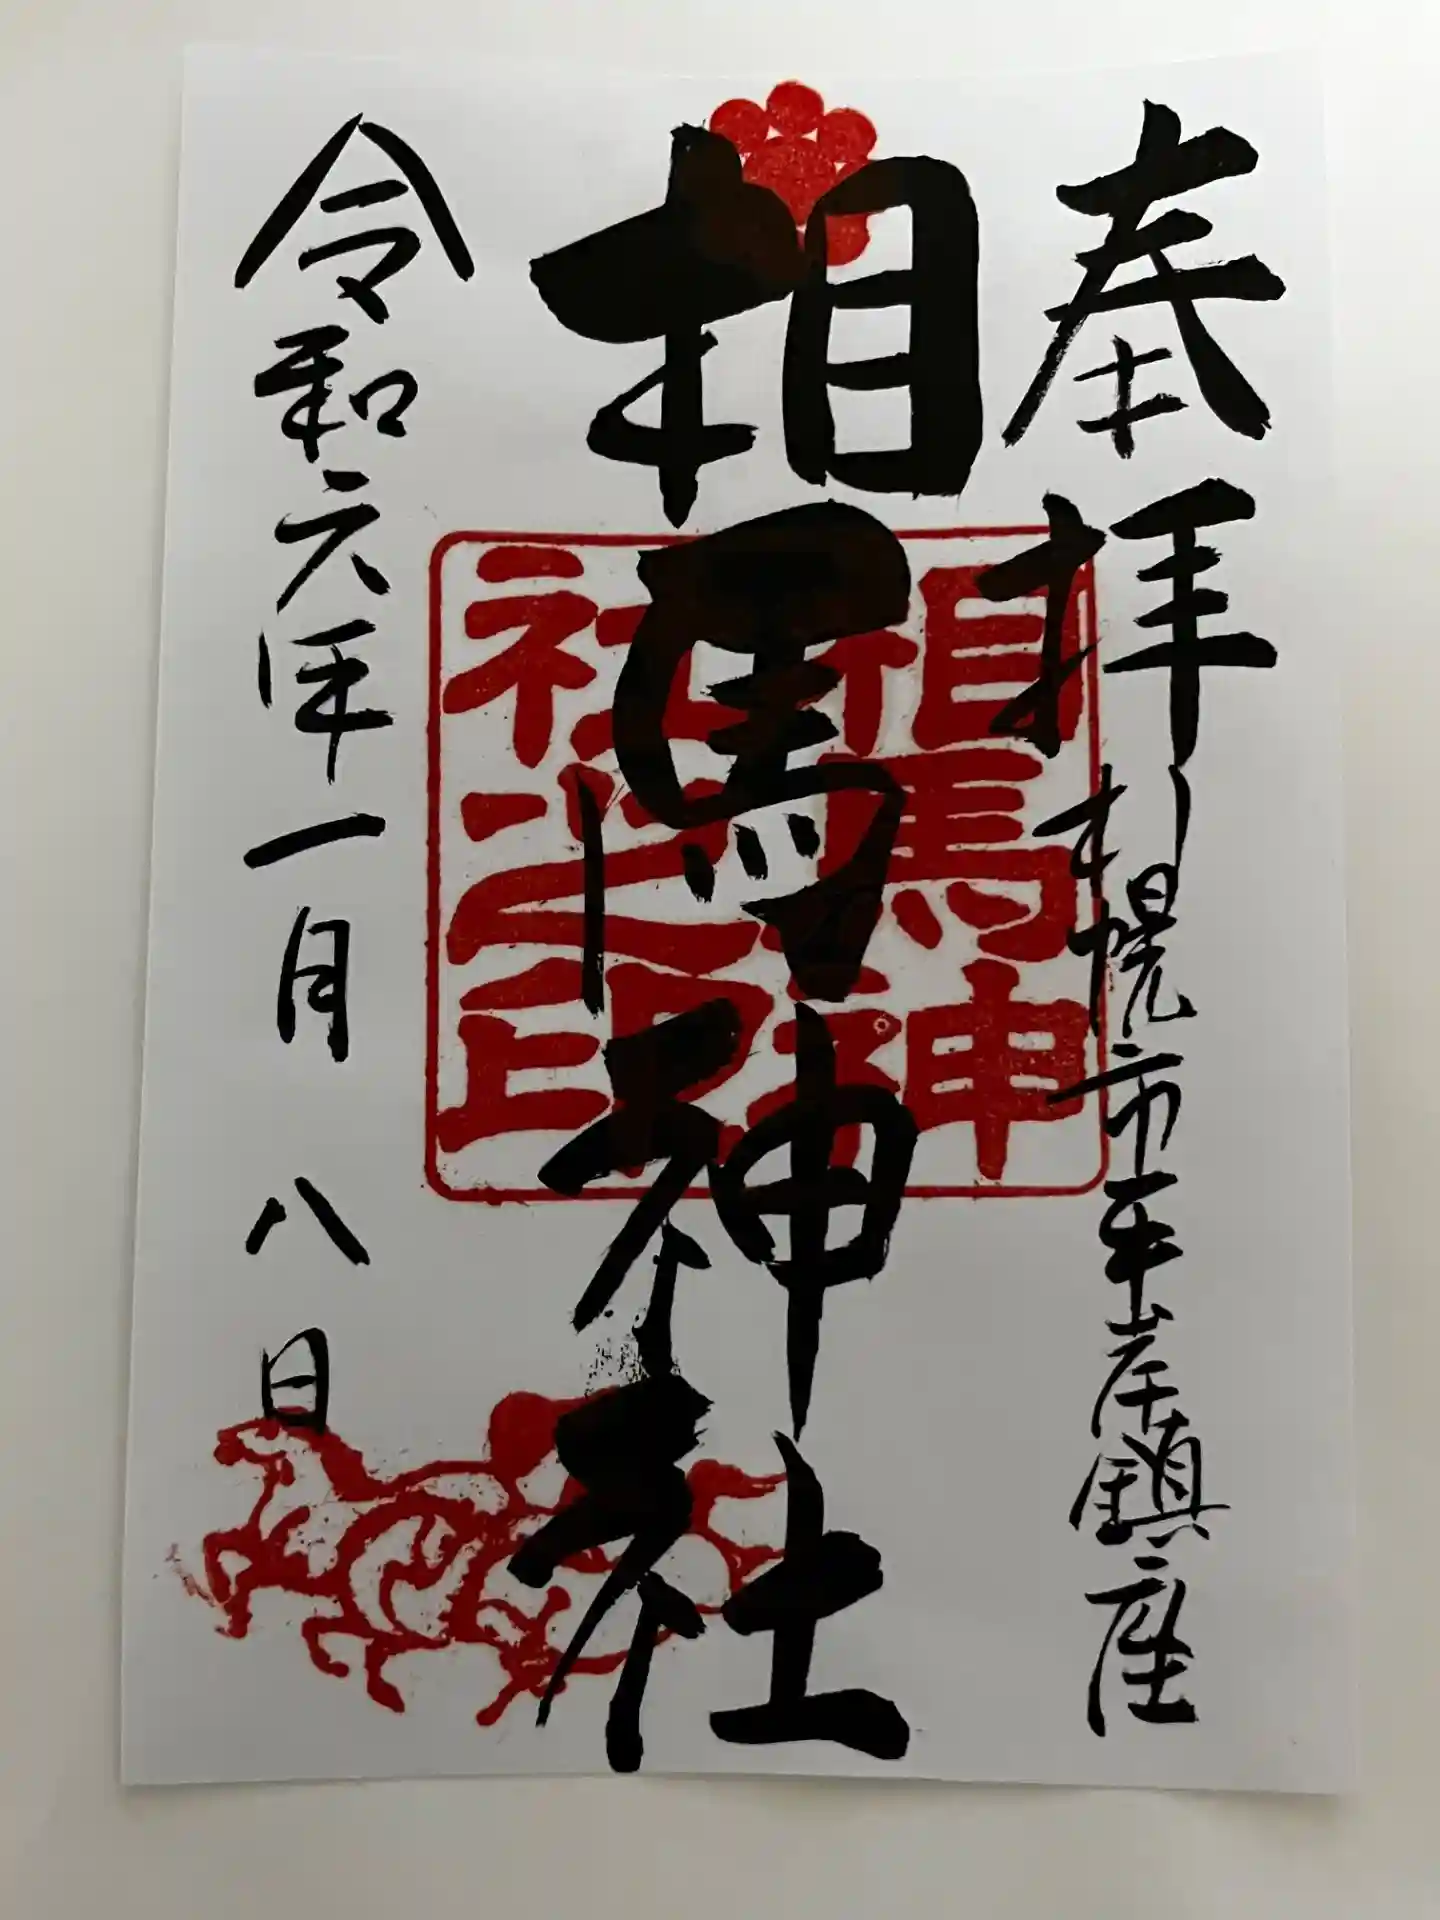 奉拝
札幌市平岸鎮座
相馬神社
相馬神
社之印
令和六年一月八日